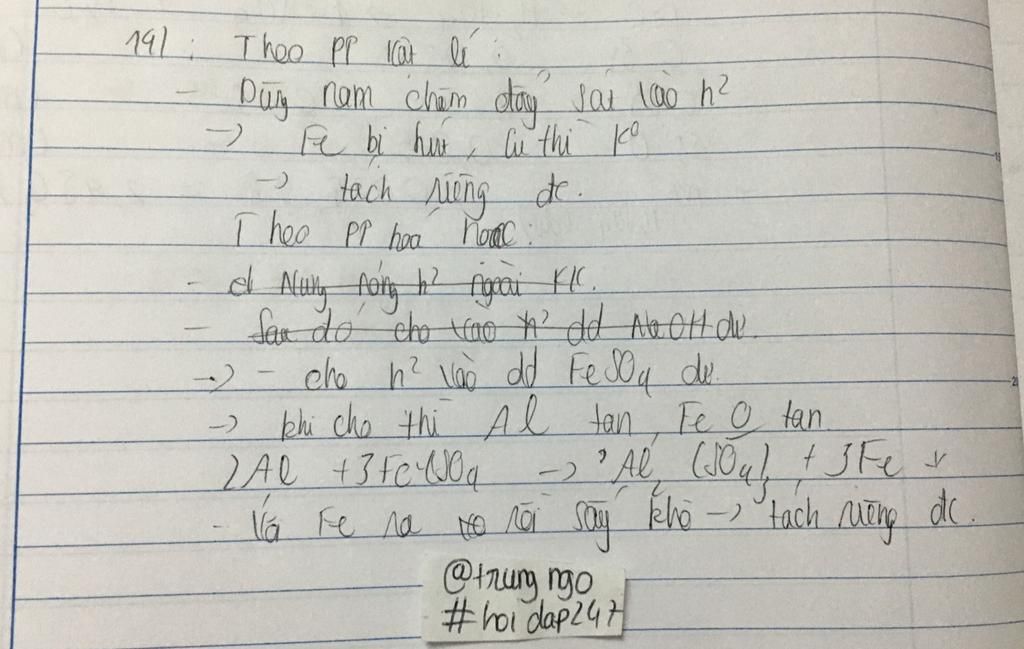 19/ : Theo PP vật lí :
- Dùng nam châm đẩy sát vào h²
-> Fe bị hút, Cu thì k⁰
-> tách riêng đc.
Theo PP hoá học:
- Nung nóng h² ngoài KK.
- Sau đó cho vào h² dd NaOH dư.
-> - cho h² vào dd FeSO4 dư.
-> khi cho thì Al tan, Fe O tan
2Al + 3FeSO4 -> Al2(SO4)3 + 3Fe ↓
- Fe ra rồi sấy khô -> tách riêng đc.
@trung ngo
#hoidap247